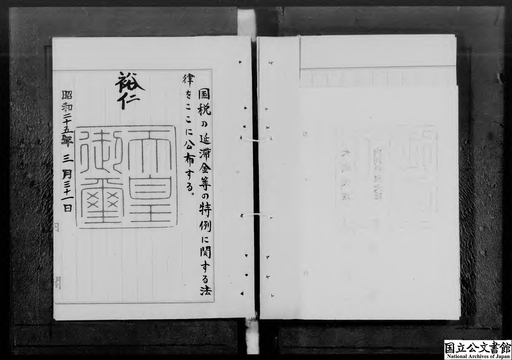 国税の延滞金等の特例に関する法
律をここに公布する。
裕仁
天皇
御璽
昭和二十五年三月三十一日
国立公文書館
National Archives of Japan